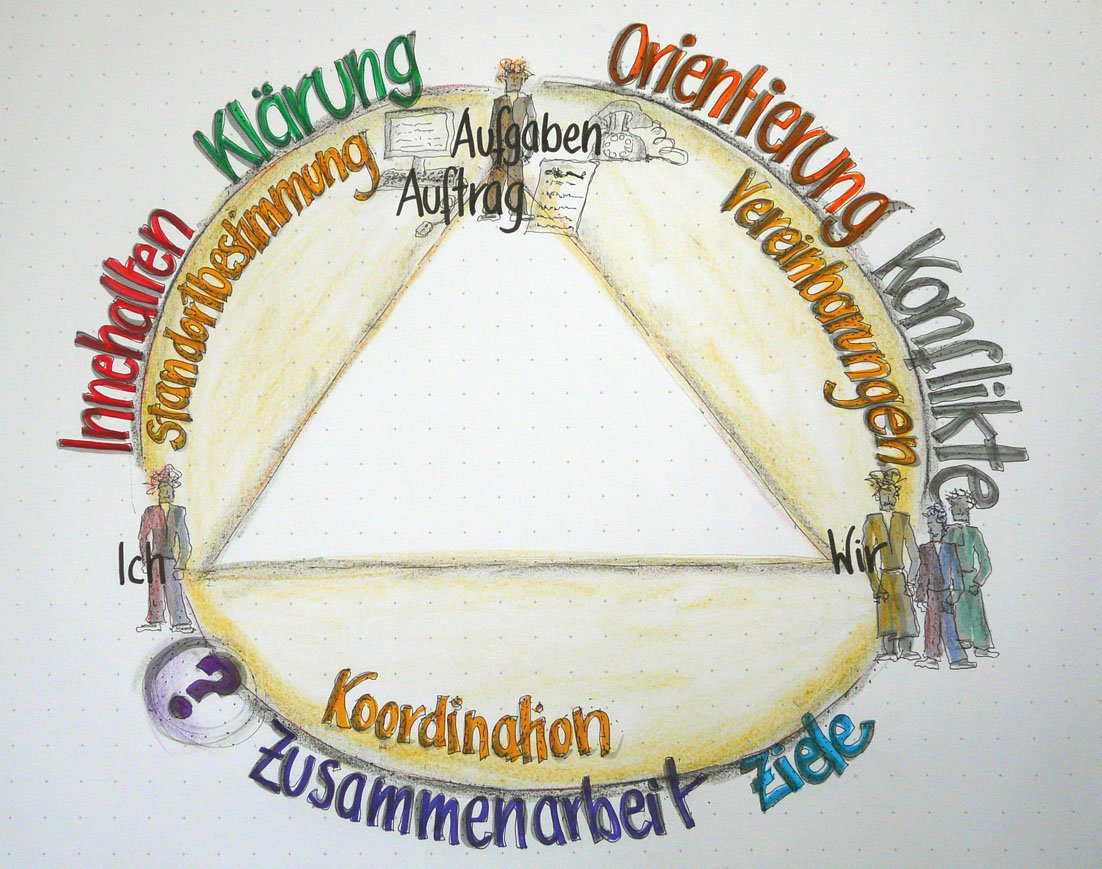 Klärung
Orientierung
Aufgaben
Auftrag
Standortbestimmung
Vereinbarungen
Innehalten
Konflikte
Ich
Wir
?
Koordination
Zusammenarbeit
Ziele